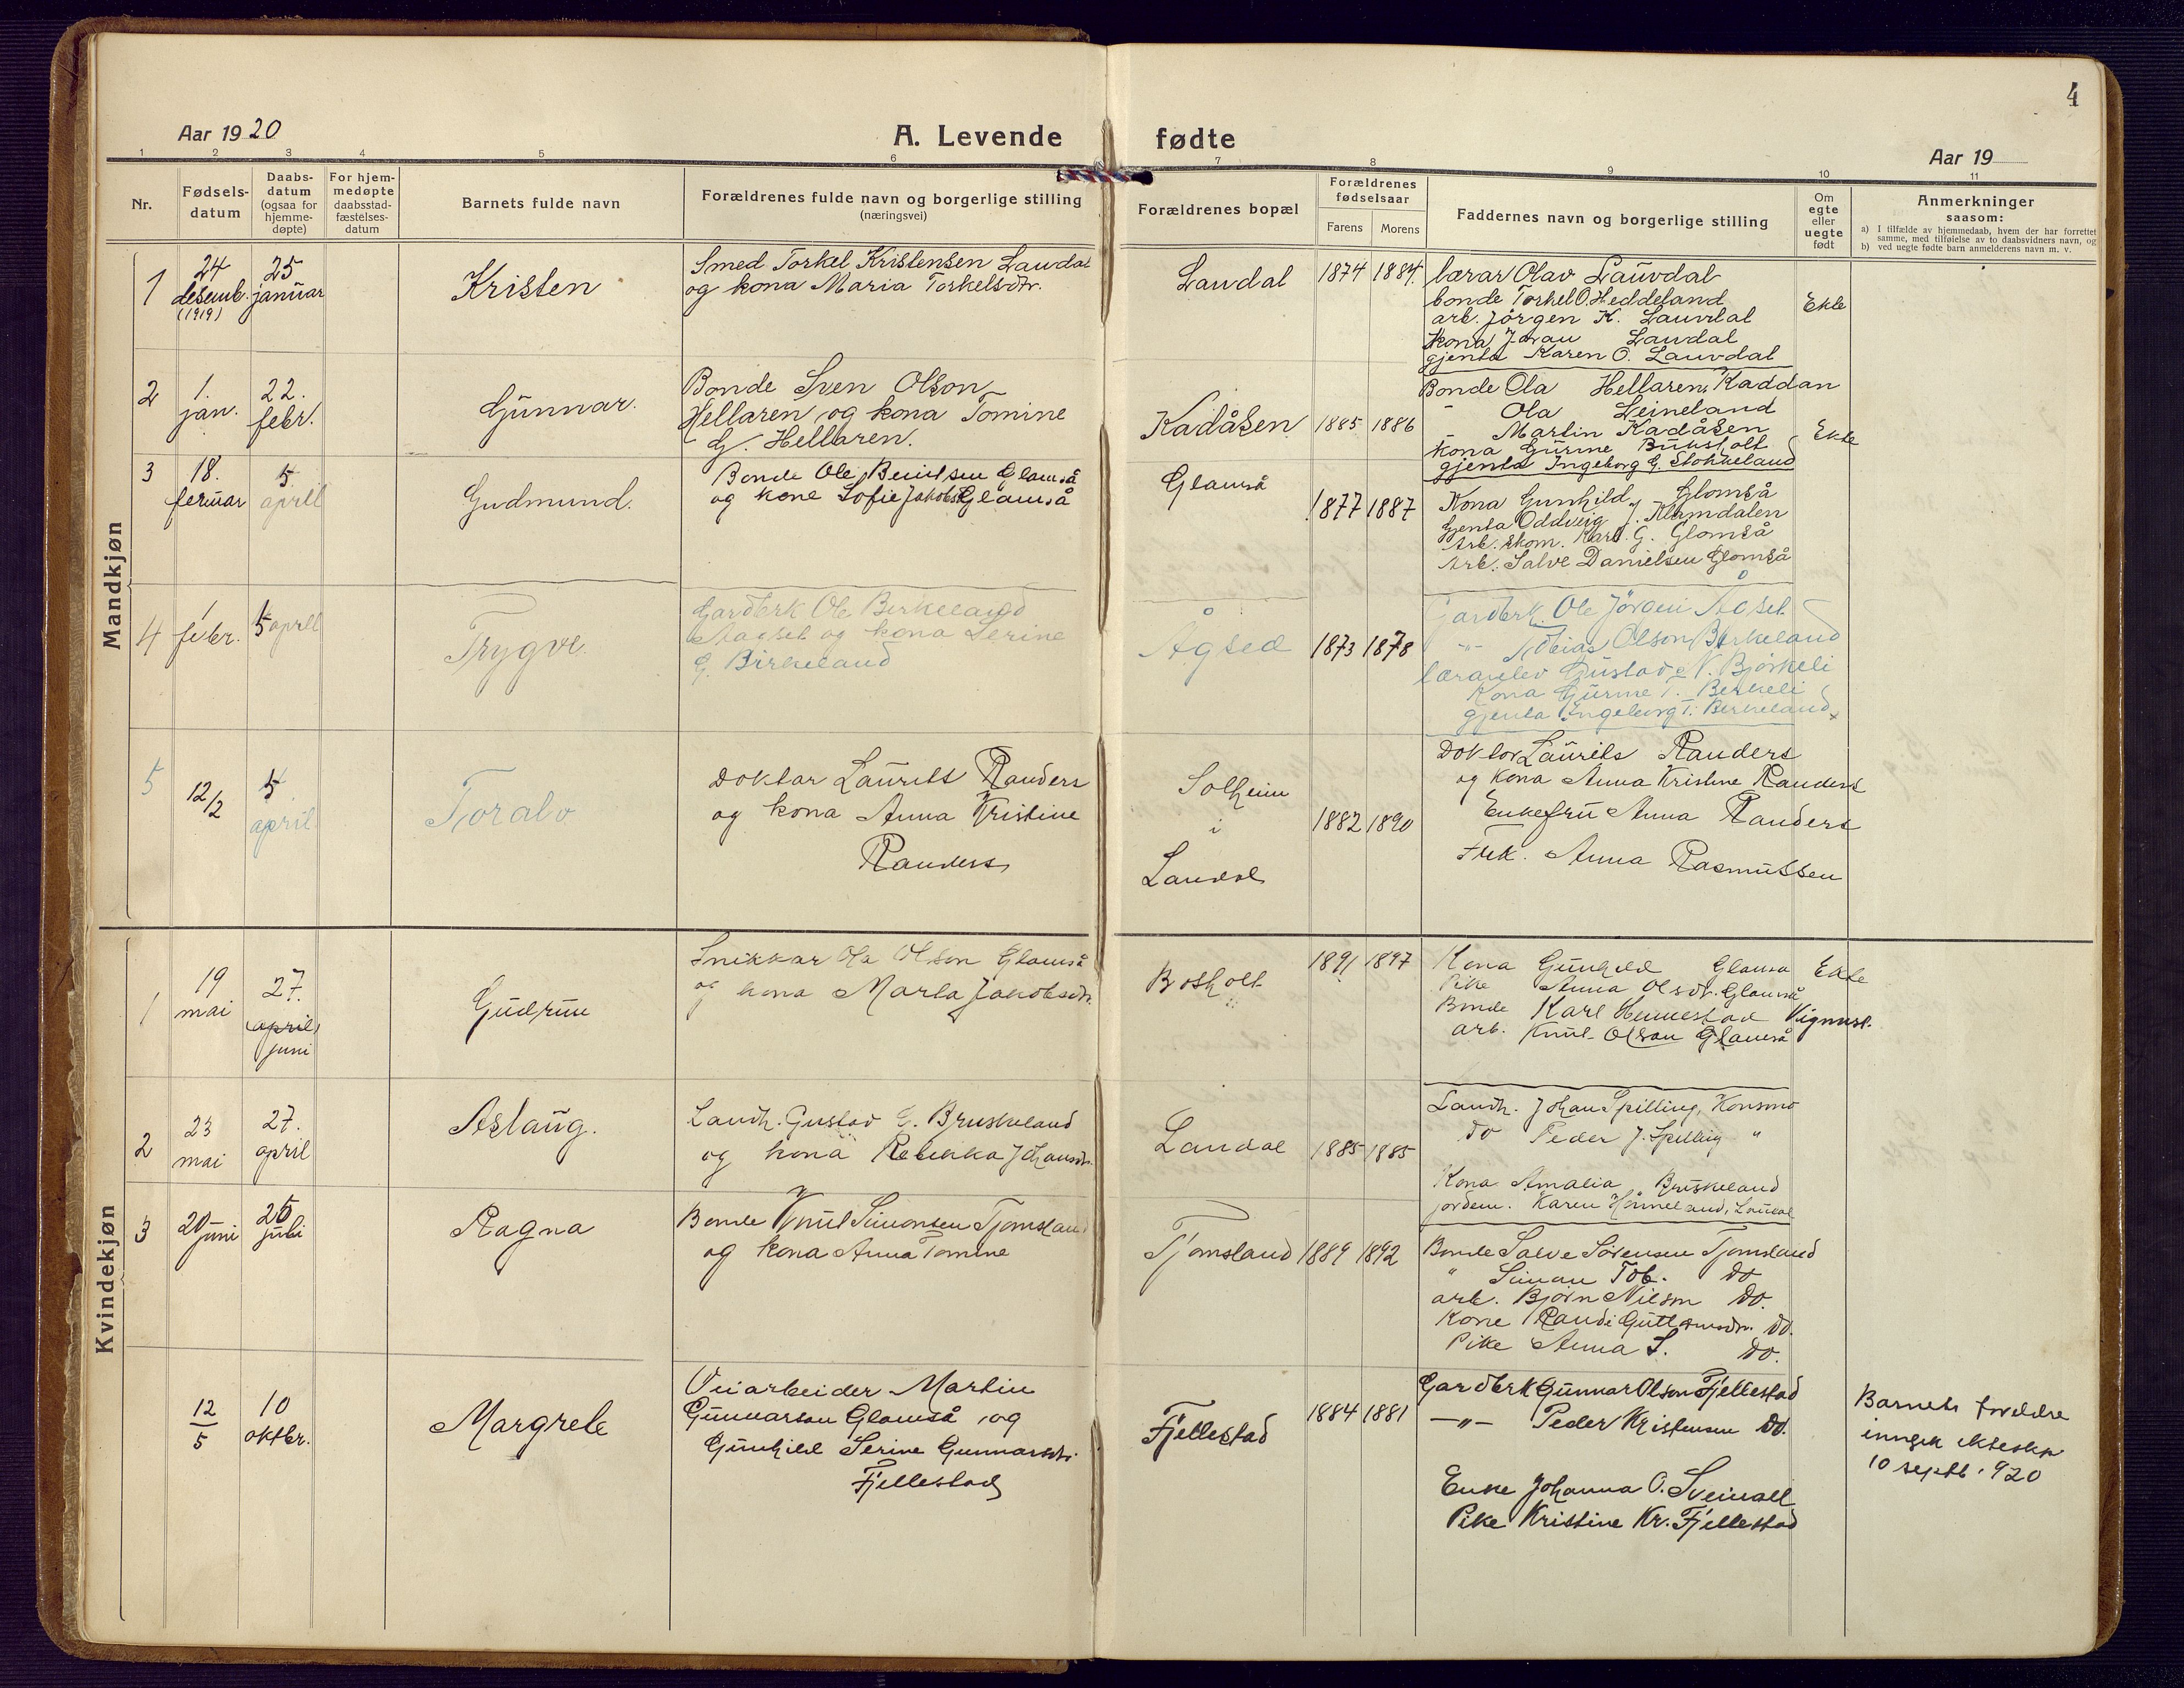 4
Aar 1920
A. Levende fødte
Aar 19
1 2 3 4 5 6 7 8 9 10 11
Nr.
Fødsels-
datum
Daabs-
datum
(ogsaa for
hjemme-
døpte)
For hjem-
medøpte
daabsstad-
fæstelses-
datum
Barnets fulde navn
Forældrenes fulde navn og borgerlige stilling
(næringsvei)
Forældrenes bopæl
Forældrenes
fødselsaar
Farens
Morens
Faddernes navn og borgerlige stilling
Om
egte
eller
uegte
født
Anmerkninger
saasom:
a) I tilfælde av hjemmedaab, hvem der har forrettet
samme, med tilføielse av to daabsvidners navn, og
b) ved uegte fødte barn anmelderens navn m. v.
Mandkjøn
1
24
desemb.
(1919)
25
januar
Kristen
Smed Torkel Kristensen Laudal
og kona Maria Torkelsdtr.
Laudal
1874
1884.
lærar Olav Lauvdal
bonde Torkel O. Heddeland
arb. Jörgen K. Lauvdal
Kona Laudal
gjenta Karen O. Lauvdal
Ekte
2
1.
jan.
22.
febr.
Gunnar.
Bonde Sven Olson
Hellaren og kona Tomine
G. Hellaren.
Kadåsen
1885
1886
Bonde Ola Hellaren, Kaddan
- Ola Leineland
- Martin Kadåsen
kona Gurine Buksholt
gjenta Ingeborg G. Stokkeland
Ekte
3
18.
feruar
5
april
Gudmund.
Bonde Ole Glamså
og kone Sofie Jakobsd Glamså
Glamså
1877
1887
Kona Gunhild Glomså
Gjenta Oddveig J. Klemdalen
Arb. Karl G. Glomså
Arb. Salve Danielsen Glomså
4
1
febr.
5 april
Trygve.
Gardbrk Ole Birkeland
og kona Serine
G. Birkeland
Ågsed
1873
1878
Gardbrk. Ole Jörgen Ågset
-"- Tobias Olson Birkeland
lærarelev Gustav N. Bjørkeli
Kona Gurine T. Berkeli
gjenta Ingeborg T. Berkeland
5
12/2
5
april
Toralv
Doktar Laurits Randers
og kona Anna Kristine
Randers
Solheim
i
Laudal
1882
1890
Doktor Laurits Randers
og kona Anna Kristine Randers
Enkefru Anna Randers
Frk. Anna Rasmussen
Kvindekjøn
1
19
mai
27.
april
juni
Gudrun
Snikkar Ola Olson Glamså
og kona Marta Jakobsdtr.
Bosholt
1891
1897
Kona Gunhild Glamsa
Pike Anna Olsdt. Glamså
Bonde Karl Vigmost.
arb. Knut Olson Glamså
Ekte
2
23
mai
27.
april
Aslaug.
Landh. Gustav G. Bruskeland
og kona Rebekka Johansdtr.
Laudal
1885
1885
Landh. Johan Spilling, Konsmo
do Peder J. Spilling "
Kona Amalia Bruskeland
jordm. Karen Laudal
3
20 juni
25
juli
Ragna
Bonde Knut Simonsen Tjomsland
og kona Anna Tomine
Tjomsland
1889
1892
Bonde Salve Sörensen Tjomsland
" Simon Tob. do
arb. Bjørn Nilson do.
Kone Randi Guttormsdtr. do.
Pike Anna S. do.
12
5
10
oktbr.
Margrete
Veiarbeider Martin
Gunnarson Glamså og
Gunhild Serine Gunnarsdtr.
Fjellestad
Fjellestad
1884
1881
Gardbrk Gunnar Olson Fjellestad
-"- Peder Kristensen do.
Enke Johanna O. Sveinall
Pike Kristine Kr. Fjellestad
Barnets foreldre
inngik ekteskp
10 septb. 920